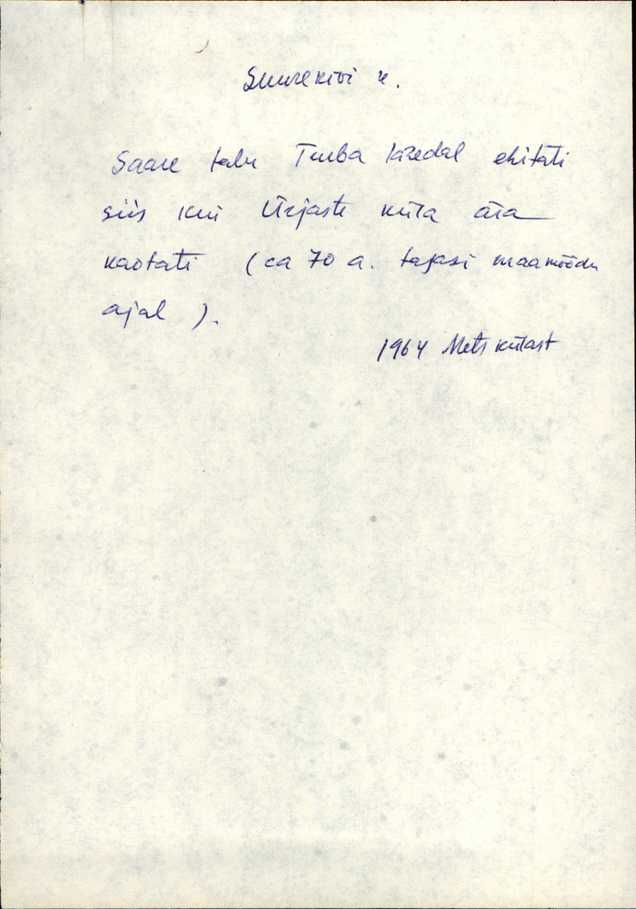 Suurekivi k.
Saare talu Turba läedal ehitati
siis kui Ürjaste küla ära
kaotati (ca 70 a. tagasi maamõõdu
ajal ).
1964 Metskülast